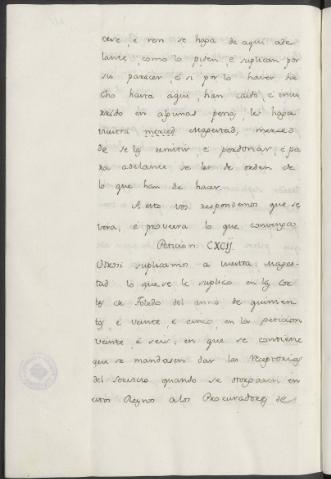 cese, é non se haga de aqui ade-
lante, como lo piden, é suplican por
su parecer, é si por lo haver he-
cho hasta aqui, han caido, é incu-
rrido en algunas penas, les haga
vuestra merced Magestad, merced
de se las remitir, é perdonar, é pa-
ra adelante se les de orden de
lo que han de hacer.
A esto vos respondemos que se
vera, é proveera lo que convenga
Peticion CXCII.
Otrosi suplicamos a vuestra Mages-
tad lo que se le suplico en las Cor-
tes de Toledo del anno de quinien-
tos é veinte é cinco, en la peticion
veinte é seis, en que se contiene
que se mandasen dar las Receptorias
del servicio quando se otorgasen en
estos Reynos a los Procuradores de